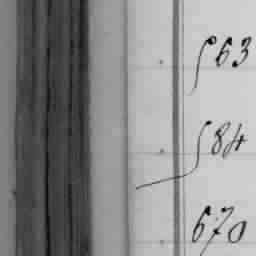 563
584
670